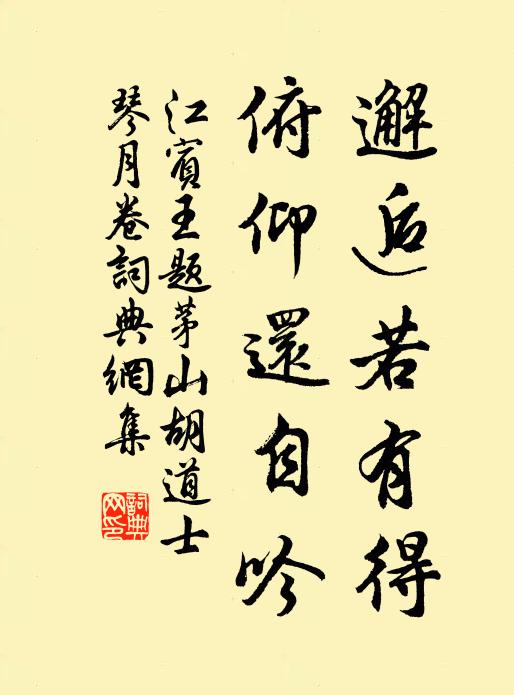 邂逅若有得
俯仰還自吟
江賓王題茅山胡道士
琴月卷詞典網集
詞典网印